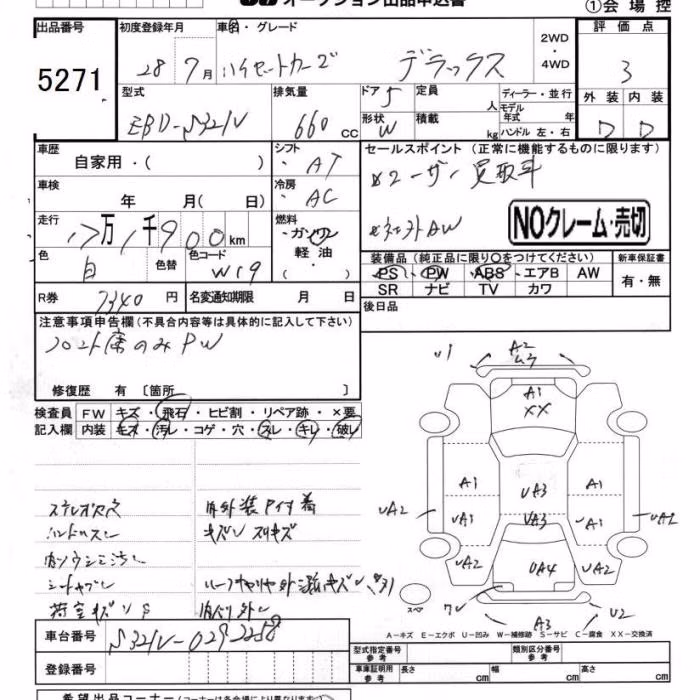 オークション出品申込書
①会場控
出品番号 初度登録年月 車名・グレード 2WD・4WD 評価点
5271 28 7月 ハイゼットカーゴ デラックス 3
型式 排気量 ドア 5 定員 人 ディーラー・並行 外装 内装
EBD-S321V 660 cc 形状 W 積載 kg モデル年式 年 ハンドル 左・右 D D
車歴 シフト セールスポイント (正常に機能するものに限ります)
自家用・( ) ・AT
車検 冷房 ユーザー買取車
年 月(日) ・AC
走行 燃料 NOクレーム・売切
17万1千900km ・ガソリン 軽油・( )
色 色替 色コード 装備品(純正品に限り○をつけてください) 新車保証書
白 W19 PS PW ABS エアB AW 有・無
SR ナビ TV カワ
R券 7340円 名変通知期限 月 日 後日品
注意事項申告欄(不具合内容等は具体的に記入して下さい)
フロント席のみPW
修復歴 有 〔箇所
検査員 FW キズ・飛石・ヒビ割・リペア跡・×要
記入欄 内装 キズ・汚レ・コゲ・穴・スレ・キレ・破レ
ステレオ欠穴 内外装 付着
ハンドルスレ キズ スリキズ
シートヤブレ
荷室キズ 内バリ外レ
U1 A2
A1
XX
A1 UA3 A1
UA2 UA1 UA3 UA1 UA2
UA2 UA4 UA2
スペア
A3 U2
A-キズ E-エクボ U-凹み W-補修跡 S-サビ C-腐食 XX-交換済
車台番号 S321V-0292258
型式指定番号 参考 類別区分番号 参考
登録番号 車庫証明用 参考 長さ 幅 高さ
希望出品コーナー(コーナーは各会場により異なります)